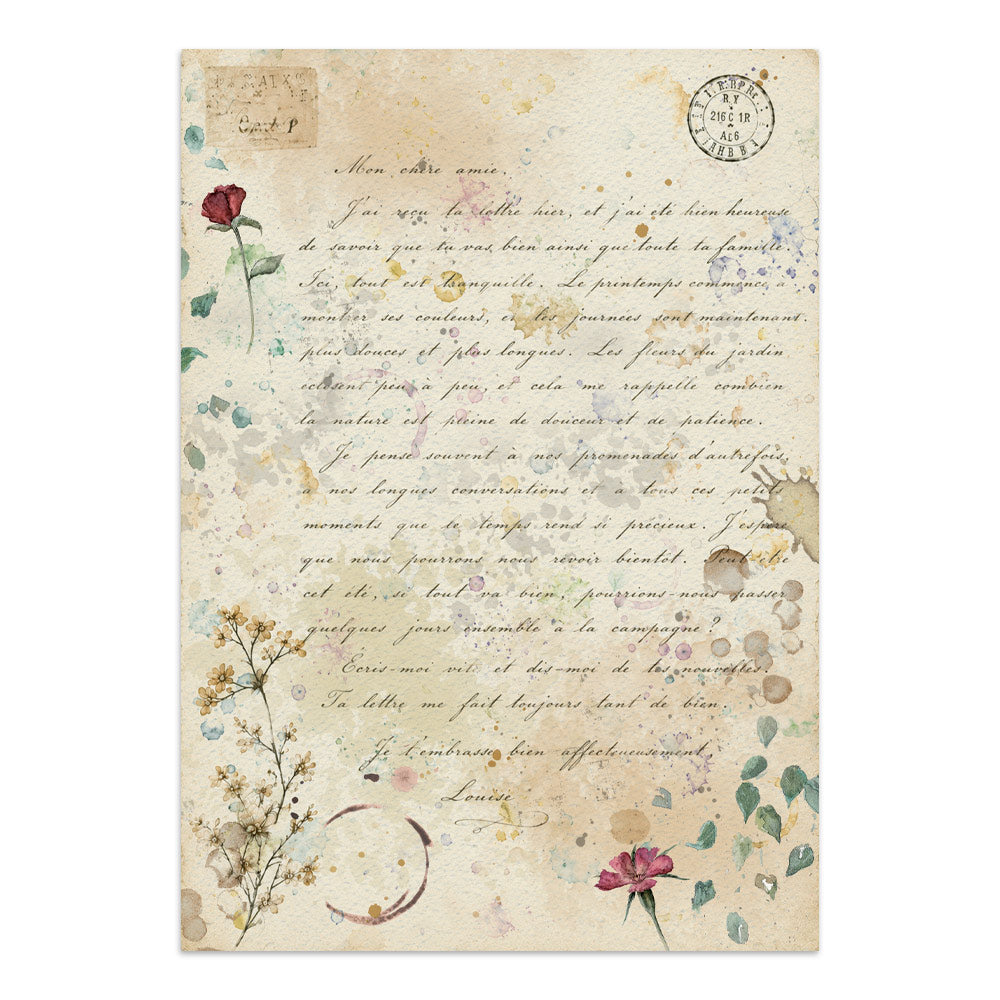 Mon chère amie,
J'ai reçu ta lettre hier, et j'ai été bien heureuse
de savoir que tu vas bien ainsi que toute ta famille.
Ici, tout est tranquille. Le printemps commence à
montrer ses couleurs, et les journées sont maintenant
plus douces et plus longues. Les fleurs du jardin
éclosent peu à peu, et cela me rappelle combien
la nature est pleine de douceur et de patience.
Je pense souvent à nos promenades d'autrefois,
à nos longues conversations et à tous ces petits
moments que le temps rend si précieux. J'espère
que nous pourrons nous revoir bientôt. Peut-être
cet été, si tout va bien, pourrions-nous passer
quelques jours ensemble à la campagne?
Écris-moi vite et dis-moi de tes nouvelles.
Ta lettre me fait toujours tant de bien.
Je t'embrasse bien affectueusement,
Louise
R.Y
216C 1R
A66